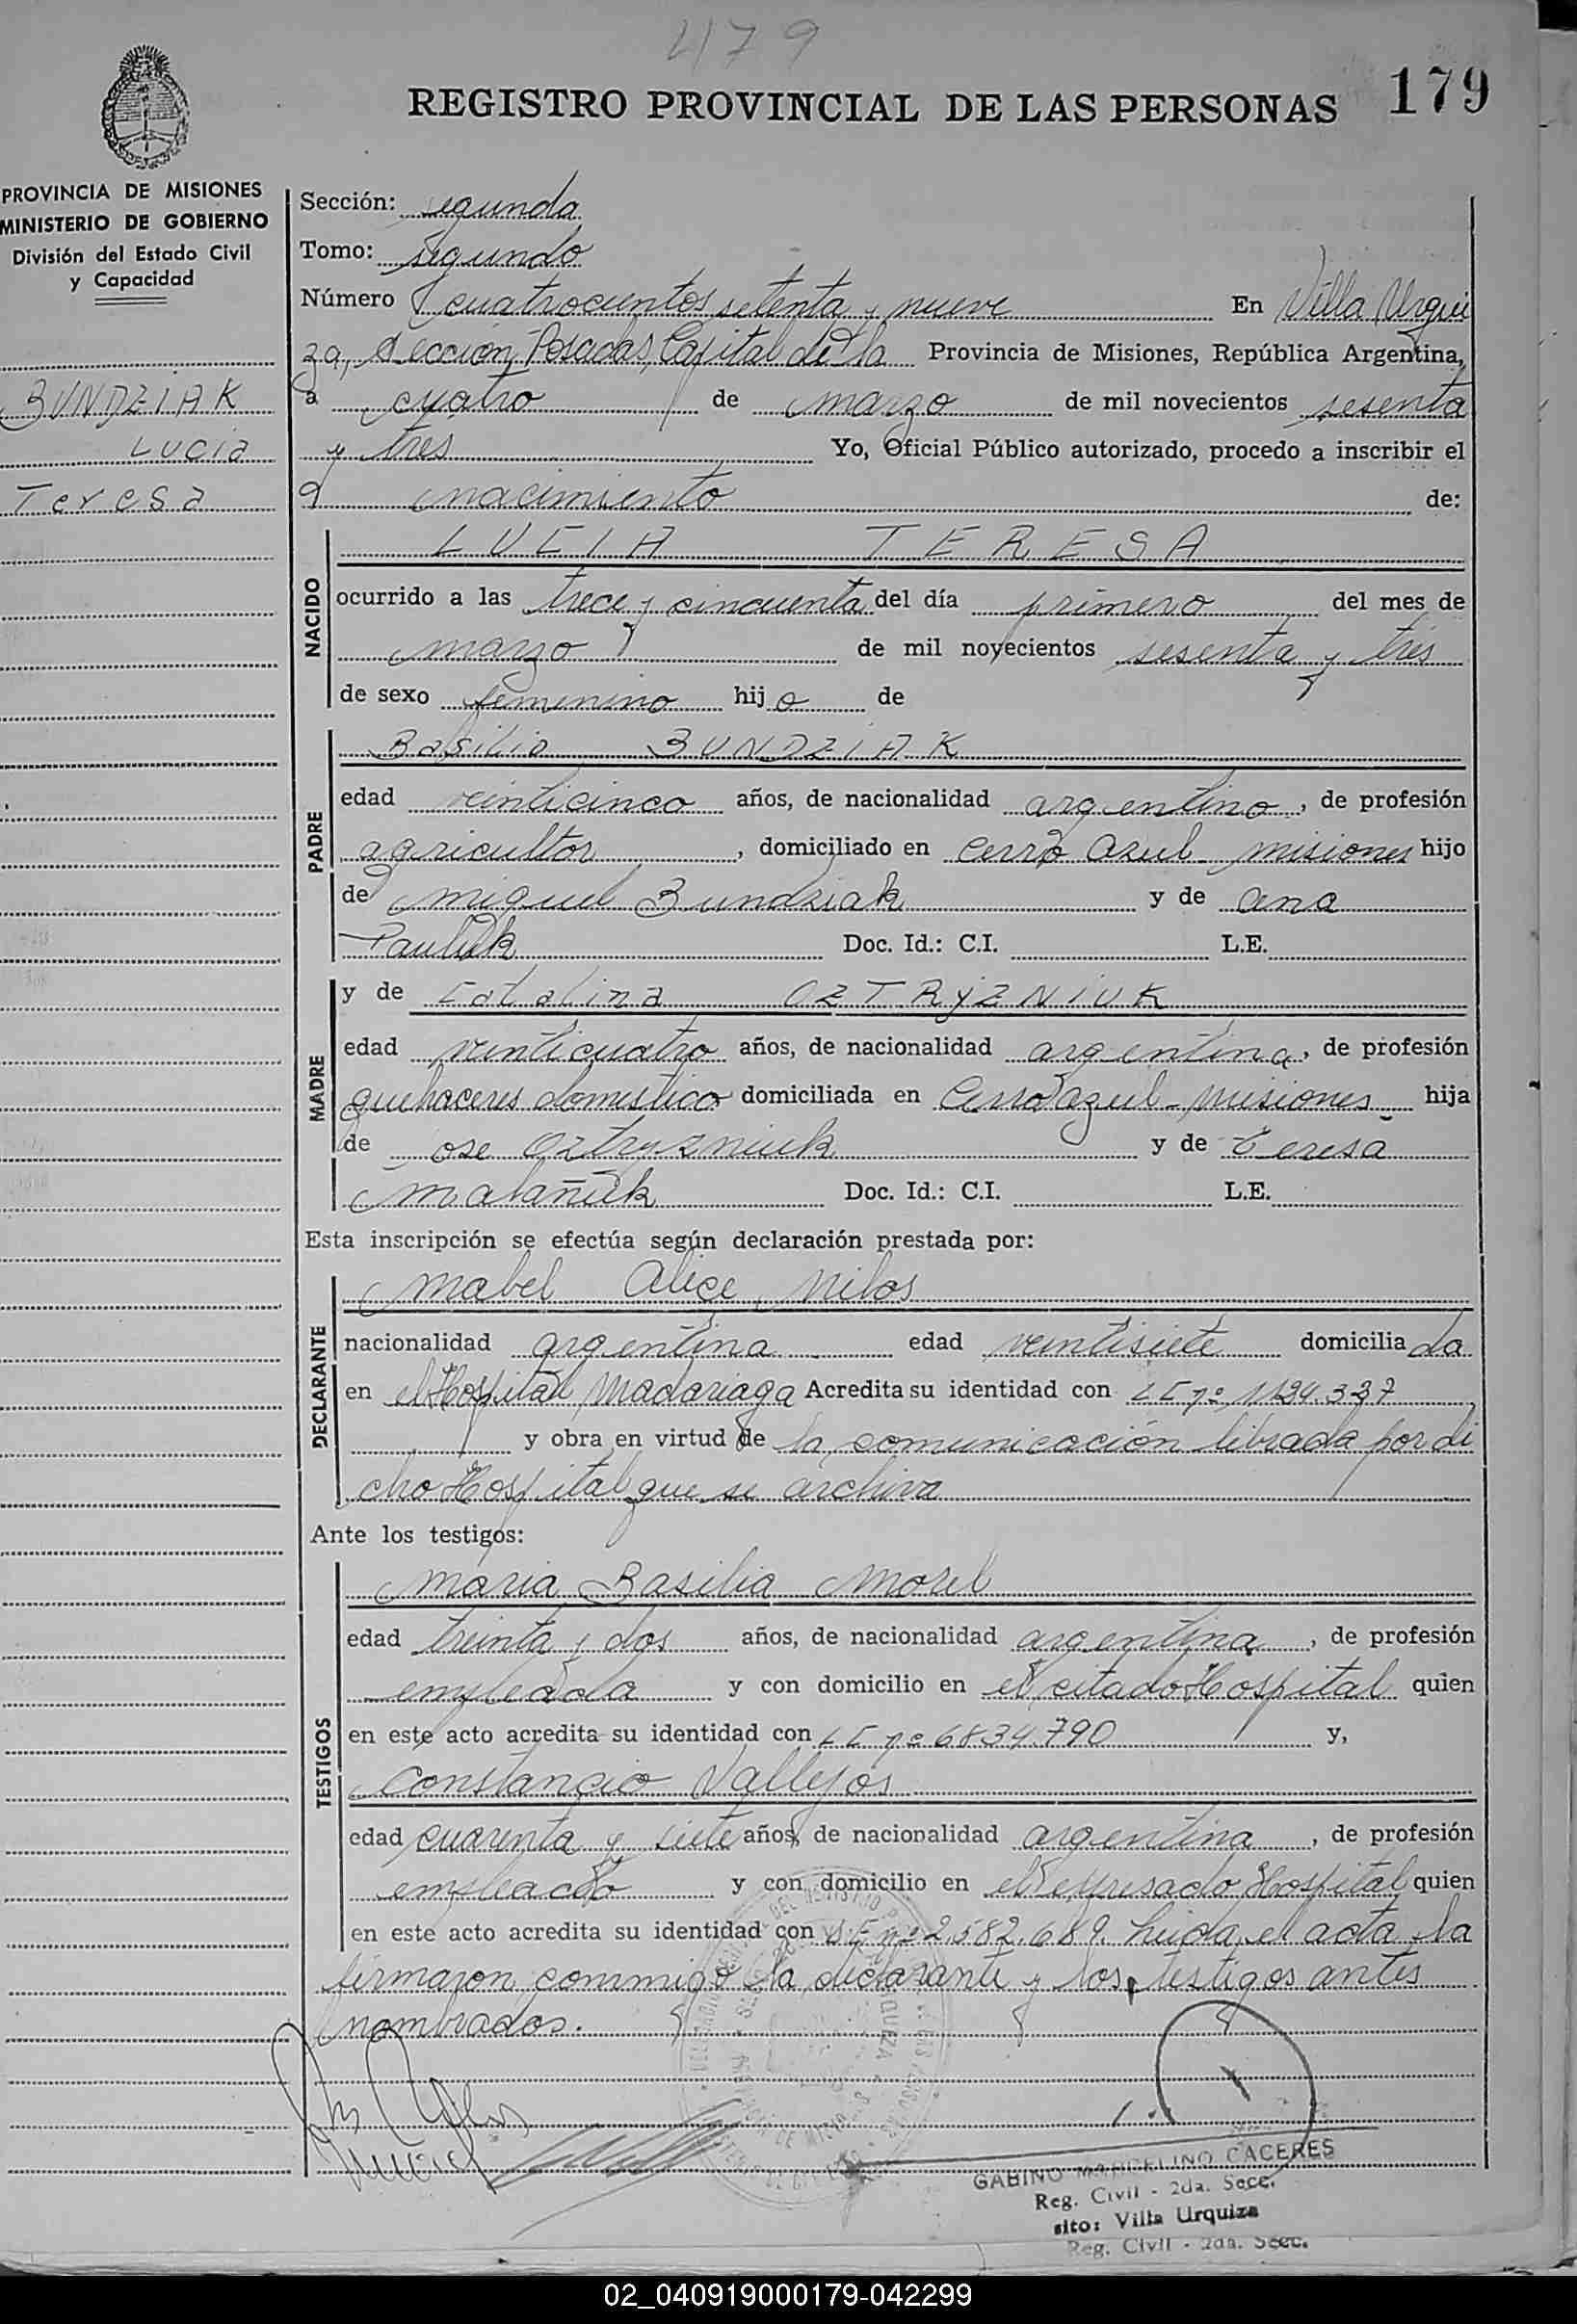 479
REGISTRO PROVINCIAL DE LAS PERSONAS 179
PROVINCIA DE MISIONES
MINISTERIO DE GOBIERNO
División del Estado Civil
y Capacidad
BUNDZIAK
Lucia
Teresa
Sección: segunda
Tomo: segundo
Número cuatrocientos setenta y nueve En Villa Urqui
za, Sección Posadas, Capital de la Provincia de Misiones, República Argentina,
a cuatro de marzo de mil novecientos sesenta
y tres Yo, Oficial Público autorizado, procedo a inscribir el
nacimiento de:
NACIDO
LUCIA TERESA
ocurrido a las trece y cincuenta del día primero del mes de
marzo de mil novecientos sesenta y tres
de sexo femenino hija de
PADRE
Basilio BUNDZIAK
edad veinticinco años, de nacionalidad argentino, de profesión
agricultor, domiciliado en Cerro Azul misiones hijo
de miguel Bundziak y de ana
Pauluk Doc. Id.: C.I. L.E.
MADRE
y de Catalina OZTRYZNIUK
edad veinticuatro años, de nacionalidad argentina, de profesión
quehaceres domestico domiciliada en Cerro azul - misiones hija
de jose Oztryzniuk y de Teresa
malañuk Doc. Id.: C.I. L.E.
Esta inscripción se efectúa según declaración prestada por:
DECLARANTE
Mabel Alice Milos
nacionalidad argentina edad veintisiete domiciliada
en el Hospital Madariaga Acredita su identidad con LC nº
y obra en virtud de la comunicación librada por di
cho Hospital que se archiva
Ante los testigos:
TESTIGOS
Maria Basilia Morel
edad treinta y dos años, de nacionalidad argentina, de profesión
empleada y con domicilio en el citado Hospital quien
en este acto acredita su identidad con LC nº 6834.790 y,
Constancio Vallejos
edad cuarenta y siete años, de nacionalidad argentina, de profesión
empleado y con domicilio en el expresado Hospital quien
en este acto acredita su identidad con nº 2.582.689. Leida el acta la
firmaron conmigo la declarante y los testigos antes
nombrados.
GABINO MARCELINO CACERES
Reg. Civil - 2da. Secc.
sito: Villa Urquiza
Reg. Civil - 2da. Secc.
02_040919000179-042299